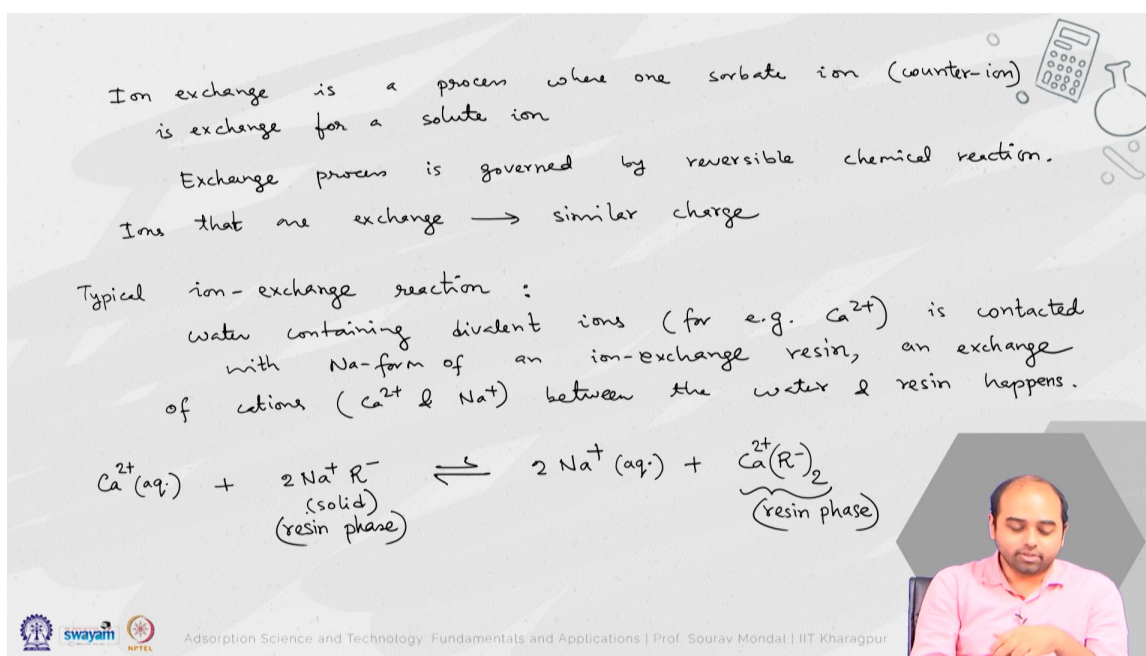 Ion exchange is a process where one sorbate ion (counter-ion)
is exchange for a solute ion
Exchange process is governed by reversible chemical reaction.
Ions that are exchange ⟶ similar charge
Typical ion-exchange reaction :
water containing divalent ions (for e.g. Ca²⁺) is contacted
with Na-form of an ion-exchange resin, an exchange
of cations (Ca²⁺ & Na⁺) between the water & resin happens.
Ca²⁺(aq.) + 2 Na⁺ R⁻ ⇌ 2 Na⁺ (aq.) + Ca²⁺(R⁻)₂
(solid)
(resin phase) (resin phase)
swayam NPTEL Adsorption Science and Technology: Fundamentals and Applications | Prof. Sourav Mondal | IIT Kharagpur